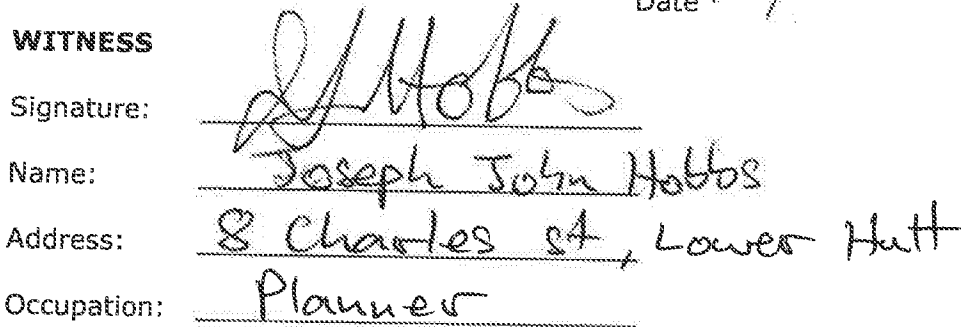 Date
WITNESS
Signature: JJHobbs
Name: Joseph John Hobbs
Address: 8 Charles st, Lower Hutt
Occupation: Planner